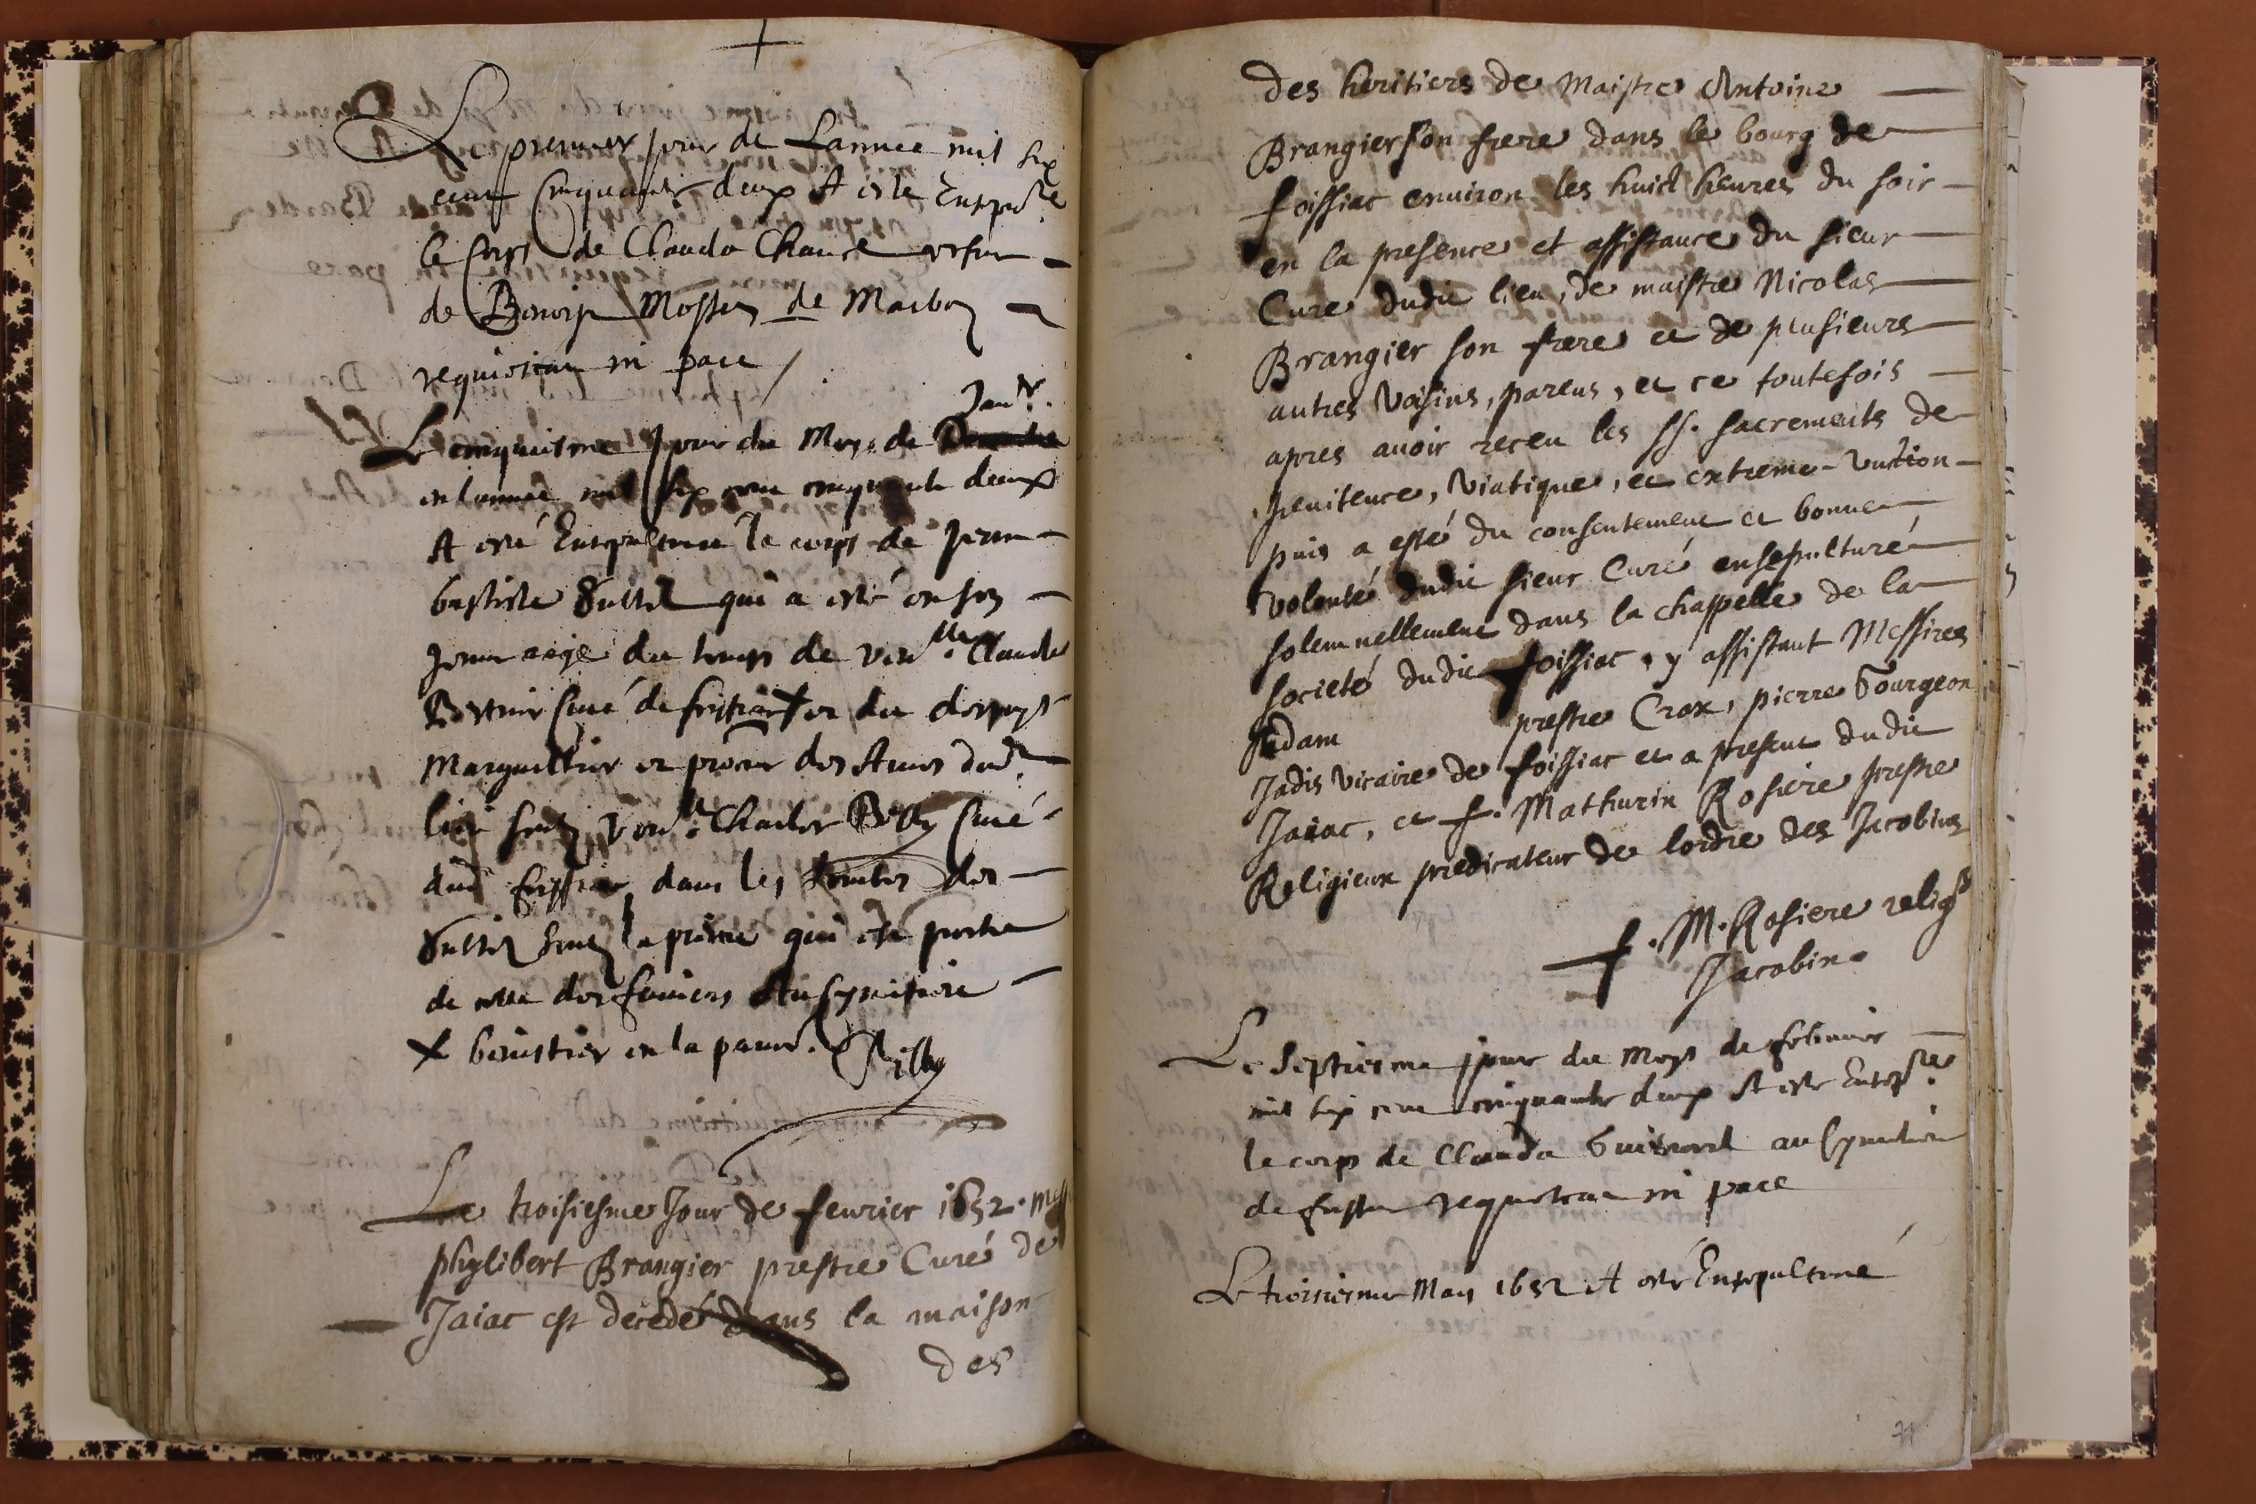 Le premier jour de Lannee mil six
cent cinquante deux A este Ensepu.re
le Corps de Clauda Chanel vefve
de Benoist Mossen de Marbo
requiescat in pace
Janr.
Le cinquiesme Jour du Moys de
en lannee mil six cent cinquante deux
A esté Ensepulturé le corps de Jean
baptiste qui a esté en son
Jeune aage du temps de ven.lle Claude
curé de et du despuys
Marguillier et procur des Ames dud.
lieu soubz ven.le Charles Billy Curé
dud foissia dans les tombes des
soubz la pierre qui est proche
de celle des feuviers Au Symitiere
benistier en la paroi. Billy
Le troisiesme Jour de fevrier 1652. Mess
phylibert Brangier prestre Curé de
Jaiac est decedé dans la maison
des
des heritiers de Maistre Antoine
Brangier son frere dans le bourg de
foissiac environ les huict heures du soir
en la presence et assistance du sieur
Cure dudit lieu, de maistre Nicolas
Brangier son frere et de plusieurs
autres voisins, parens, et ce toutefois
apres avoir receu les ss. sacrements de
penitence, viatique, et extreme-unction
puis a esté du consentement et bonne
volonté dudit sieur Curé ensepulturé
solemnellement dans la chappelle de la
societé dudit foissiac, y assistant Messires
Adam prestre Crox, pierre Gourgeon
Jadis vicaire de foissiac et a present dudit
Jaiac, et f. Mathurin Rosiere prestre
Religieux predicateur de lordre des Jacobins
f. M. Rosiere relig.x
Jacobin.
Le Septiesme jour du moys de febvrier
mil six cent cinquante deux A este Ensep.re
le corps de Clauda au Symitiere
de requiescat in pace
Le troisiesme May 1652 A este Ensepulturé
71